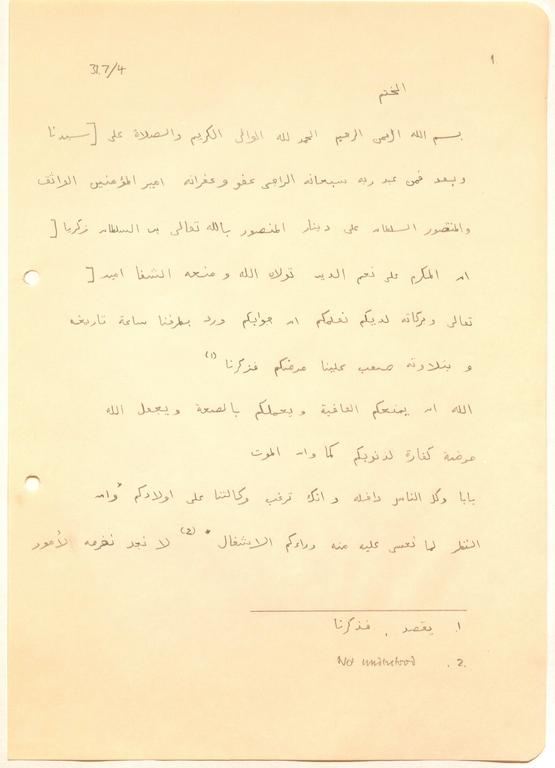 1.
31.7/4
الختم
بسم الله الرحمن الرحيم الحمد لله الوالي الكريم والصلاة على [سيدنا
وبعد فمن عبد ربه سبحانه الراجي عفو وغفرانه امير المؤمنين الواثق
والمنصور السلطان علي دينار المنصور بالله تعالى بن السلطان زكريا [
ان المكرم علي نعم الدين تولاه الله ومنحه الشفا امين [
تعالى وبركاته لديكم نعلمكم ان جوابكم ورد بطرفنا ساعة تاريخه
وبتلاوته صعب علينا مرضكم فذكرنا (1)
الله ان يمنحكم العافية ويعملكم بالصحة ويجعل الله
مرضة كفارة لذنوبكم كما وان الموت
بابا وكل الناس داخله وانك ترغب وكالتنا على اولادكم "وان
النظر لما عليه منه وراءكم الانشغال" (2) لا نجد نظرمه لأمور
1. يقصد، فذكرنا
2. Not understood